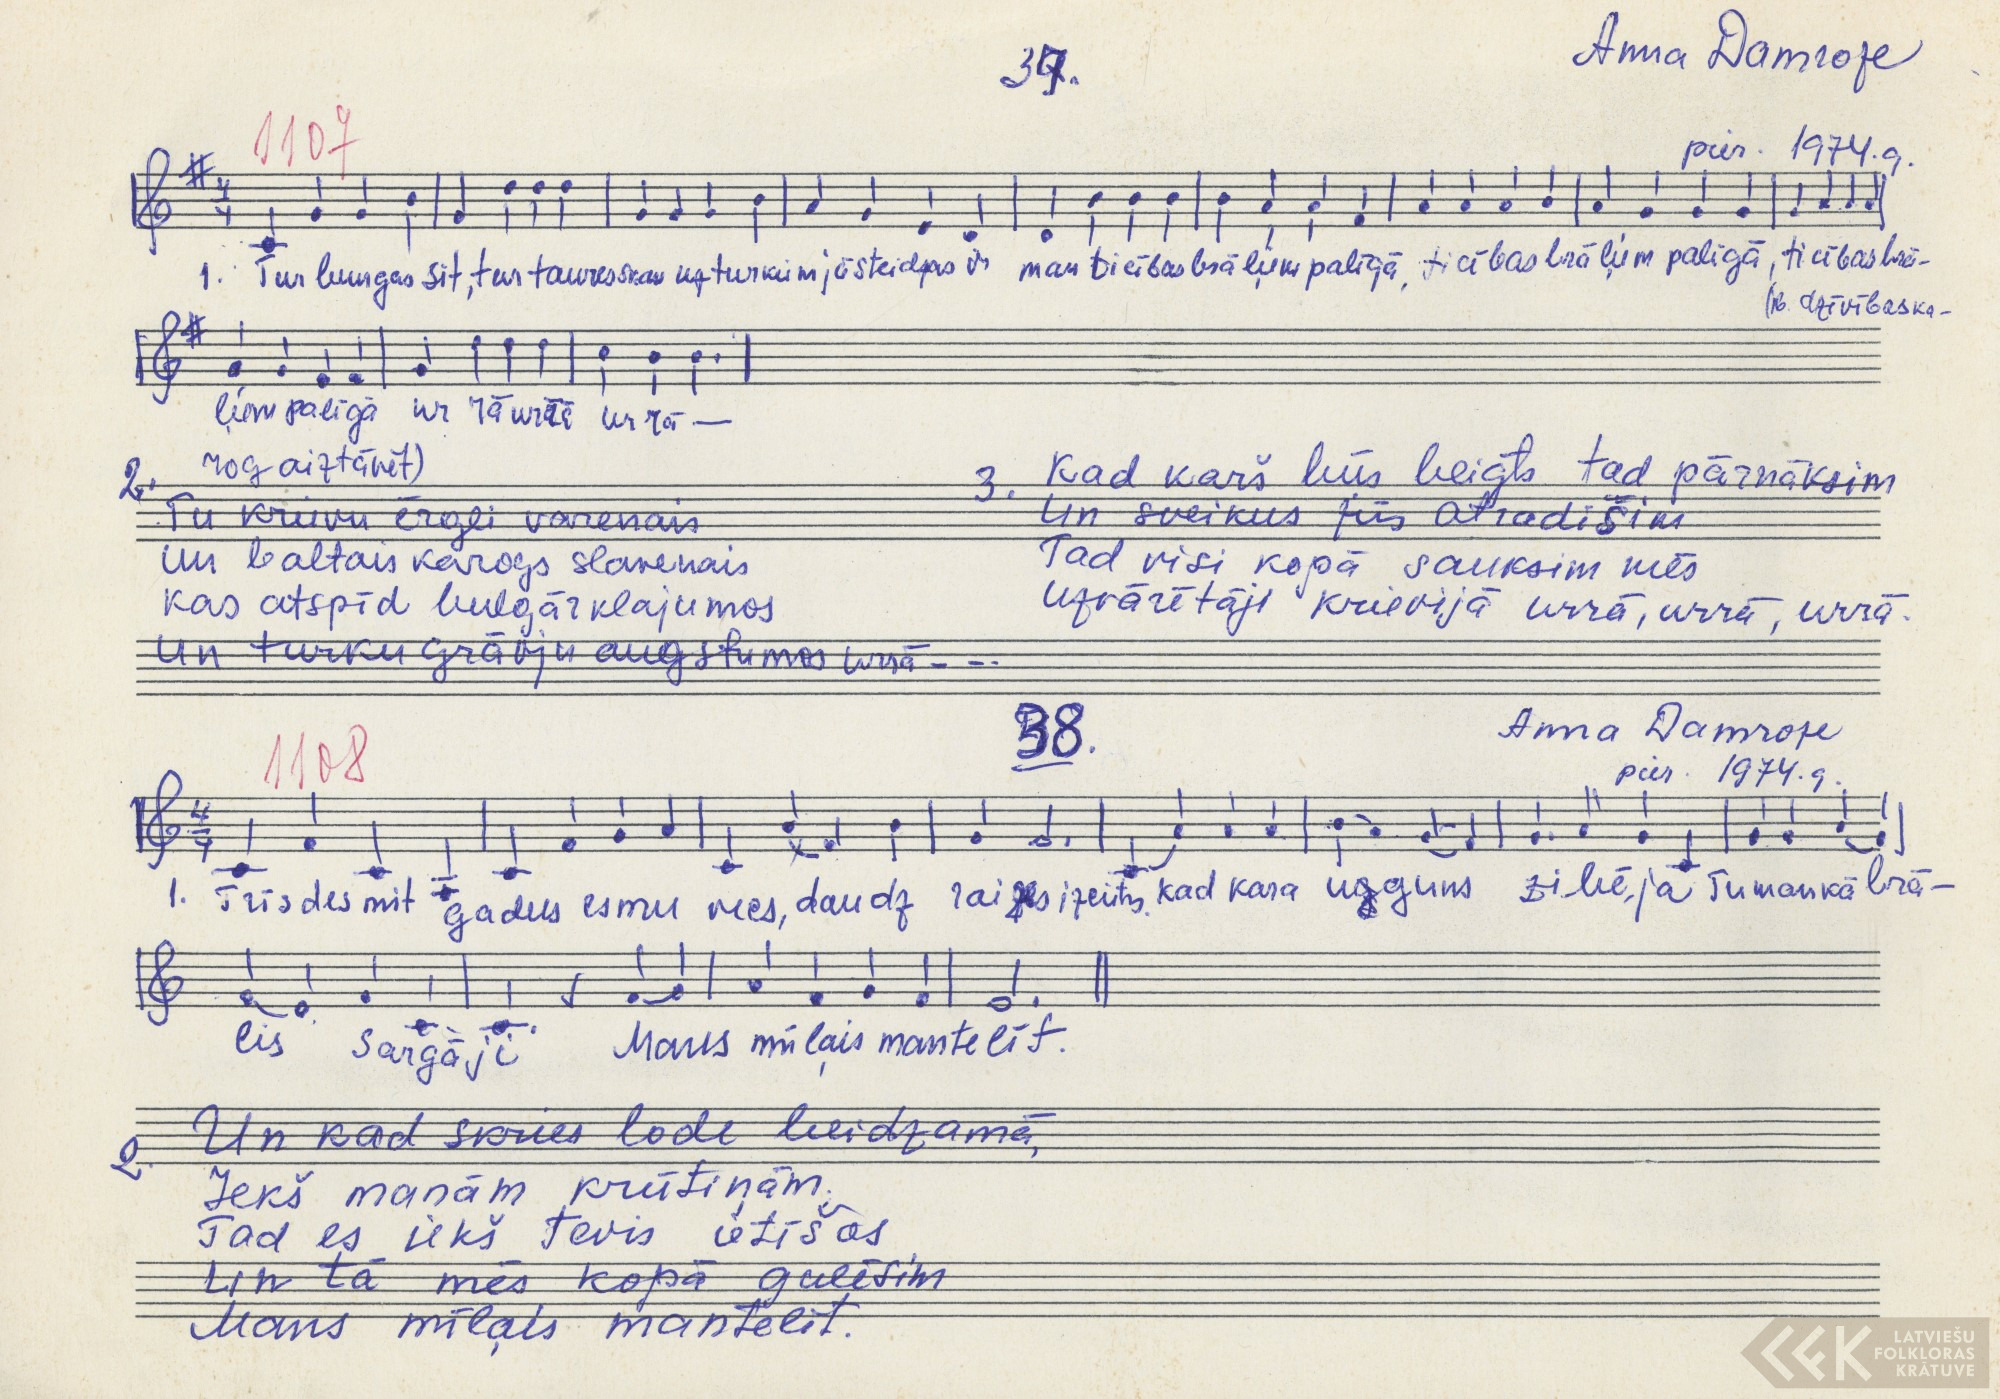 37.
Anna Damroze
1107
pier. 1974.g.
1. Tur bungas sit, tur taures skan uz turkiem jāsteidzas ir man ticības brāļiem palīgā, ticības brāļiem palīgā, ticības brā-
(vb. dzīvības ka-
ļiem palīgā ur rā urrā ur rā —
rog aiztāvēt)
2. Tu krievu ērgli varenais
Un baltais karogs slavenais
Kas atspīd bulgār klajumos
Un turku grāvju augstumos urrā - - -
3. Kad karš būs beigts tad pārnāksim
Un sveikus jūs atradīšim
Tad visi kopā sauksim mēs
Uzvārētāji Krievijā urrā, urrā, urrā.
38.
Anna Damroze
pier. 1974.g.
1108
1. Trīsdesmit gadus esmu vecs, daudz raizes izcietis, kad kara ugguns zibēja Tu man kā brā-
lis sargāji Mans mīļais mantelīt.
2. Un kad skries lode beidzamā,
Iekš manām krūtiņām.
Tad es iekš tevis ietīšos
Un tā mēs kopā gulēsim
Mans mīļais mantelīt.
LATVIEŠU
FOLKLORAS
KRĀTUVE